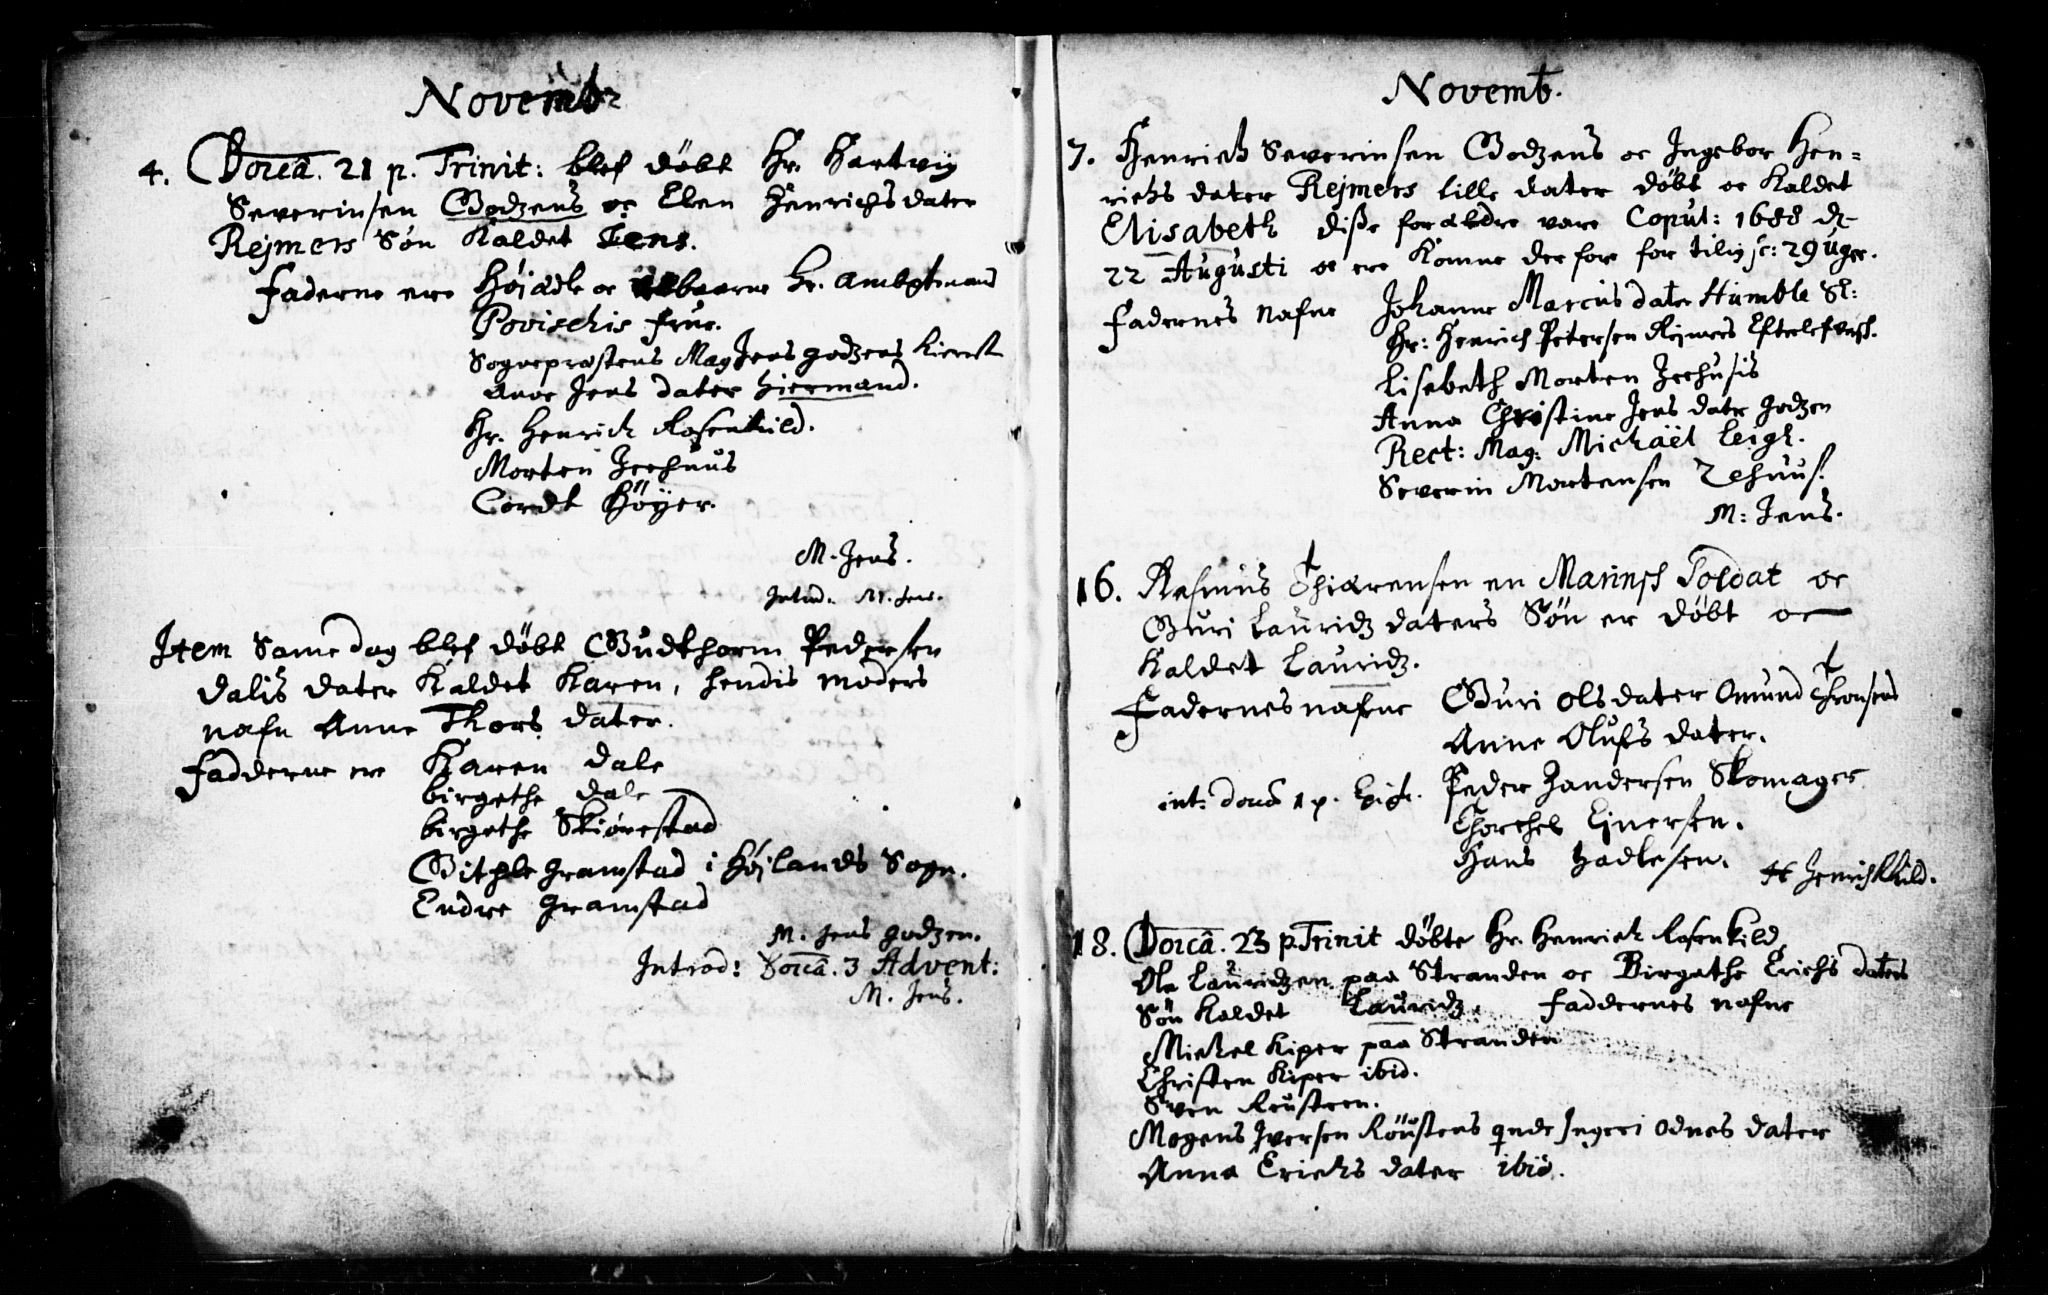 Novembr
4. Doicâ. 21 p. Trinit: blef döbt Hr. Hartvig
Severinsen Godzens oc Elen Henrichs dater
Rejmers Sön Kaldet Jens.
Faderne ere Höjädle oc velbaarne Hr. Ambtmand
Povischis Frue.
Sogneprestens Mag Jens godzens Kierest
Anne Jens dater Hiermand.
Hr. Henrich Rosenkild.
Morten Zeehuus
Cordt Höyer.
M. Jens.
Introd. M. Jens.
Item Same dag blef döbt Gudthorm Pedersen
dalis dater Kaldet Karen, hendis moders
nafn Anne Thors dater.
fadderne ere Karen dale
birgethe dale
birgethe Skiönestad
Githle gramstad i Höjlands Sogn.
Endre gramstad
M. Jens godzen.
Introd: Doicâ. 3 Advent:
M. Jens.
Novemb.
7. Henrich Severinsen Godzens oc Ingebor Hen=
richs dater Rejmers lille dater döbt oc Kaldet
Elisabeth diße forældre vare Copul: 1688 d
22 Augusti oc ere Komne der fore for tilig sc: 29 Uger.
Fadernes Nafne Johanne Marcus dater Humble Sl:
Hr: Henrich Petersen Rejmers Efterlefversk.
Lisebeth Morten Zeehusis
Anna Christine Jens dater godzen
Rect: Mag: Michaël Leigh.
Severin Mortensen Zehuus.
M: Jens.
16. Rasmus Thiærensen en Marinsch Soldat oc
Guri Lauridz daters Sön er döbt oc
Kaldet Lauridz.
Fadernes nafne Guri Olsdater Omund Thronsens
Anne Olufs dater.
int: doca 1 p. Epiph. Peder Zandersen Skomager
Thorchel Ejnersen.
Hans Hadlesen.
H Henrich Kild.
18. Doicâ. 23 p. Trinit döbte Hr. Henrich Rosenkild
Ole Lauridzen paa Stranden oc Birgethe Erichs daters
Sön Kaldet Lauridz. Faddernes nafne
Michel Kiper paa Stranden
Christen Kiper ibid.
Sven Reusteen.
Mogens Iversen Röustens qnde Ingeri Odnes dater
Anna Erichs dater ibid.